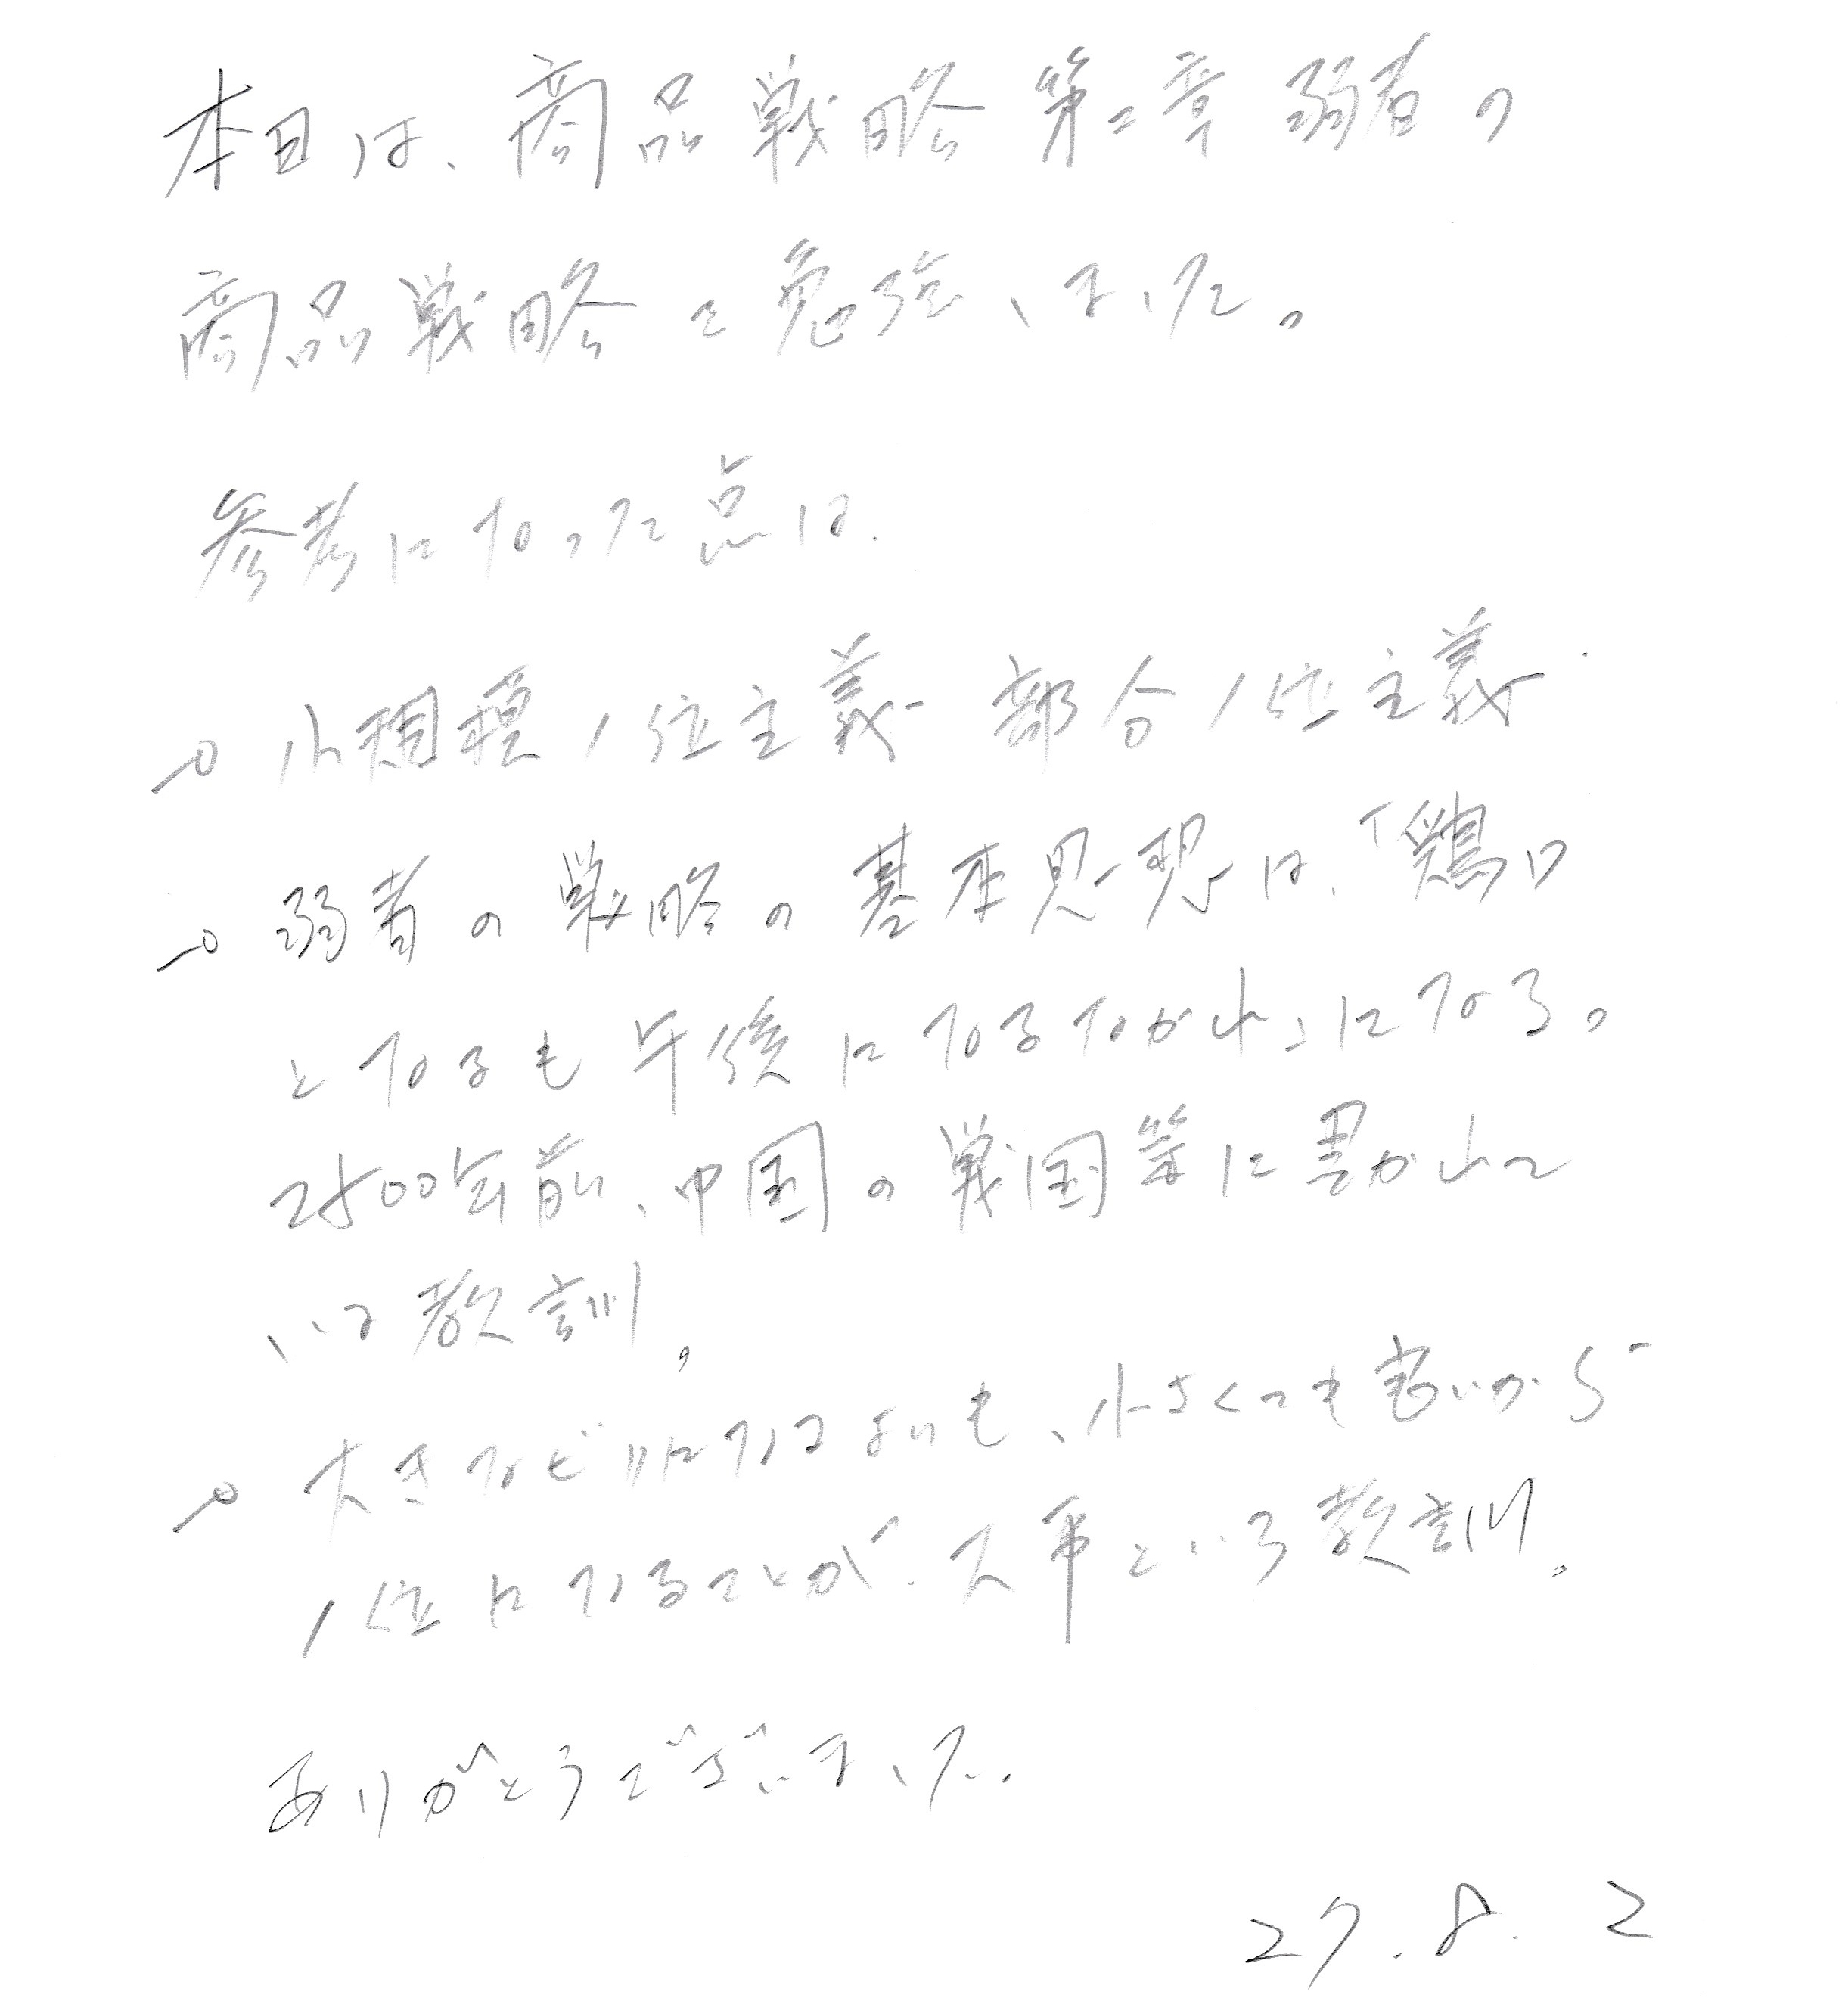 本日は、商品戦略第二章 弱者の
商品戦略を勉強しました。
参考になった点は、
→ 小規模1位主義 部分1位主義
→ 弱者の戦略の基本思想は、「鶏口
となるも牛後になるなかれ」になる。
2500年前、中国の戦国策に書かれて
いる教訓。
→ 大きなビリになるよりも、小さくても いいから
1位になることが、大事という教訓。
ありがとうございました。
27.8.2